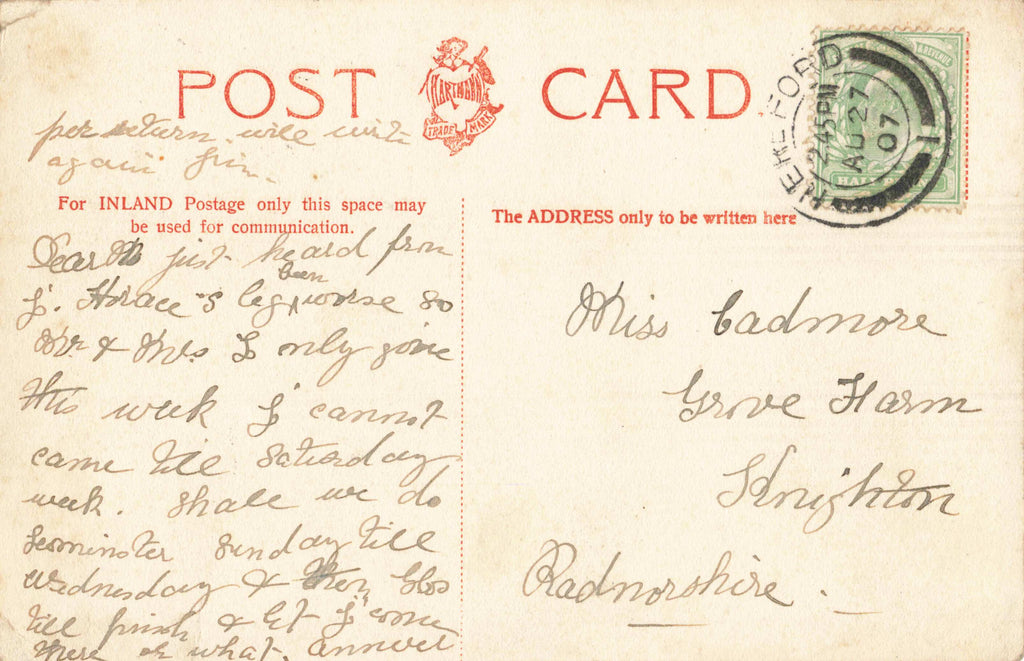 POST CARD
MARTHEWN
TRADE MARK
HEREFORD
2 45 PM
AU 27
07
1
HALF
per return will write
again Jim.
For INLAND Postage only this space may
be used for communication.
The ADDRESS only to be written here
Dear M just heard from
J. Horace's leg been worse so
Mr & Mrs J only gone
this week J cannot
come till Saturday
week. Shall we do
Leominster Sunday till
Wednesday & then Glos
till finish & let J come
there or what. answer
Miss Cadmore
Grove Farm
Knighton
Radnorshire.